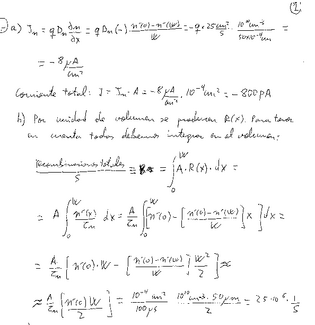 (2)
a) Jn = q Dn ∂n/∂x = q Dn (-) · n'(0)-n'(W) / W = -q · 25 cm²/s · 10^10 cm^-3 / 50·10^-4 cm =
= -8 μA/cm²
Corriente total: I = Jn · A = -8 μA/cm² · 10^-4 cm² = -800 pA
b) Por unidad de volumen se producen R(x). Para tener
en cuenta todas debemos integrar en el volumen:
Recombinaciones totales / s = ∫₀^W A · R(x) · dx =
= A ∫₀^W n'(x)/τn dx = A/τn ∫₀^W [n'(0) - [n'(0)-n'(W) / W] x] dx =
= A/τn [n'(0) · W - [n'(0)-n'(W) / W] W²/2] ≈
≈ A/τn [n'(0) W / 2] = 10^-4 cm² / 100 μs · 10^10 cm^-3 · 50 μm / 2 = 25 · 10^6 · 1/s